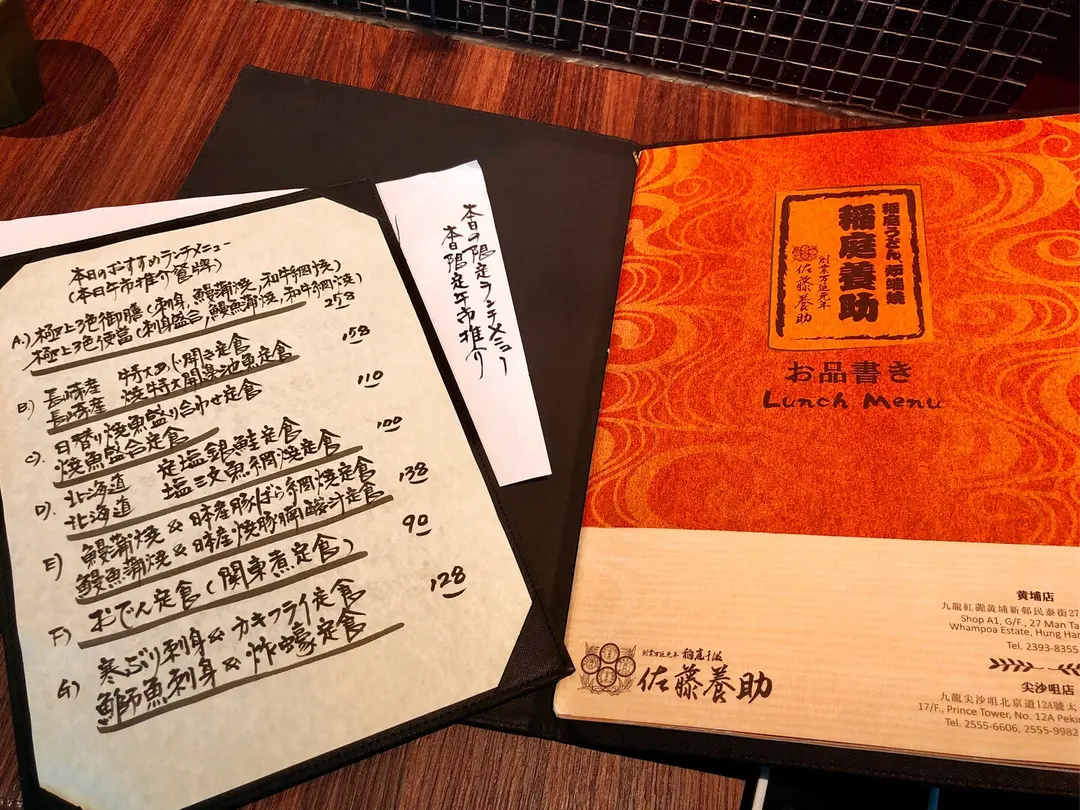 本日のおすすめランチメニュー
(本日午市推介餐牌)
A.) 極上3色御膳(刺身、鰻蒲焼、和牛網焼)
極上3色便當(刺身盛合,鰻魚蒲焼,和牛網燒)
258
B) 長崎産 特大あじ開き定食
長崎産 燒特大開湯池魚定食
158
C). 日替り焼魚盛り合わせ定食
焼魚盛合定食
110
D) 北海道 定塩銀鮭定食
北海道 塩三文魚網燒定食
100
E) 鰻蒲焼 & 日本産豚ばら網焼定食
鰻魚蒲焼 & 日本産燒豚腩酸汁定食
138
F) おでん定食(関東煮定食)
90
G) 寒ぶり刺身 & カキフライ定食
鰤魚刺身 & 炸蠔定食
128
本日の限定ランチメニュー
本日限定午市推介
稲庭うどん
稲庭養助
創業万延元年
佐藤養助
お品書き
Lunch Menu
創業万延元年 稲庭干饂
佐藤養助
黄埔店
九龍紅磡黄埔新邨民泰街27
Shop A1, G/F., 27 Man Ta
Whampoa Estate, Hung Ha
Tel. 2393-8355
尖沙咀店
九龍尖沙咀北京道12A號太
17/F., Prince Tower, No. 12A Peki
Tel. 2555-6606, 2555-9982